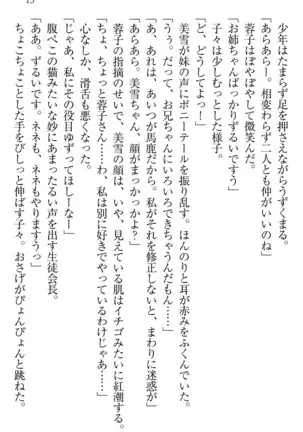 少年はたまらず足を押さえながらうずくまる。
「あらあらー。相変わらず二人とも仲がいいのね」
蓉子はぽやぽやして微笑んだ。
「お姉ちゃんばっかりずるいですっ」
子々は少しむっとした様子。
「ど、どうしてよっ！」
「うぅ。だって、お兄ちゃんにいろいろできちゃうんだもん……」
美雪が妹の声にポニーテールを振り乱す。ほんのりと耳が赤みをふくんでいた。
「あ、あれは、あいつが馬鹿だから。私がそれを修正しないと、まわりに迷惑が」
「あらあらー。美雪ちゃん、顔がまっかっかよ？」
蓉子の指摘のせいで、美雪の顔は、いや、見えている肌はイチゴみたいに紅潮する。
「ちょ、ちょっと蓉子さん……わ、私は別に好きでやっているわけじゃあ……」
心なしか、滑舌も悪くなった。
「じゃあ、私にその役目ゆずってほしーなー」
腹ぺこの猫みたいな妙にあまったるい声を出す生徒会長。
「ああ。ずるいです。ネネも、ネネもやりますうっ」
ちょこちょことした手をびしっと伸ばす子々。おさげがぴょんぴょんと跳ねた。